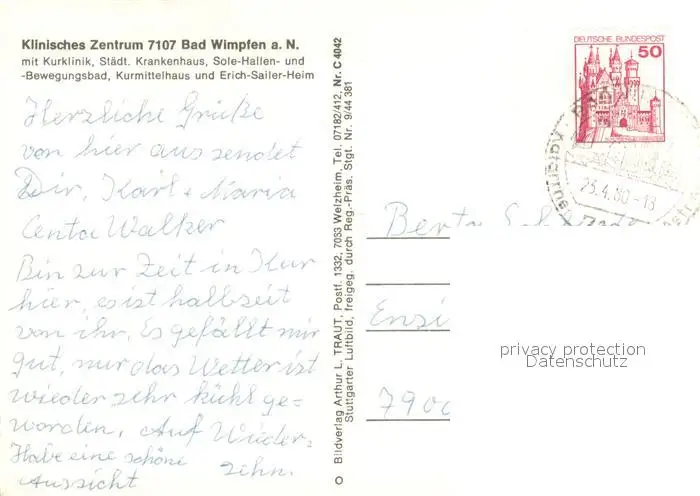 Klinisches Zentrum 7107 Bad Wimpfen a. N.
mit Kurklinik, Städt. Krankenhaus, Sole-Hallen- und
-Bewegungsbad, Kurmittelhaus und Erich-Sailer-Heim
Herzliche Grüße
von hier aus sendet
Dir, Karl + Maria
Centa Walker
Bin zur Zeit in Kur
hier, es ist halbzeit
von ihr. Es gefällt mir
gut, nur das Wetter ist
wieder sehr kühl ge=
worden. Auf Wieder=
sehn.
Habe eine schöne
Aussicht
Bildverlag Arthur L. TRAUT, Postf. 1332, 7063 Welzheim, Tel. 07182/412, Nr. C 4042
Stuttgarter Luftbild, freigeg. durch Reg.-Präs. Stgt. Nr. 9/44 381
DEUTSCHE BUNDESPOST
50
23.4.80-18
Berta
Ensi
7900
privacy protection
Datenschutz